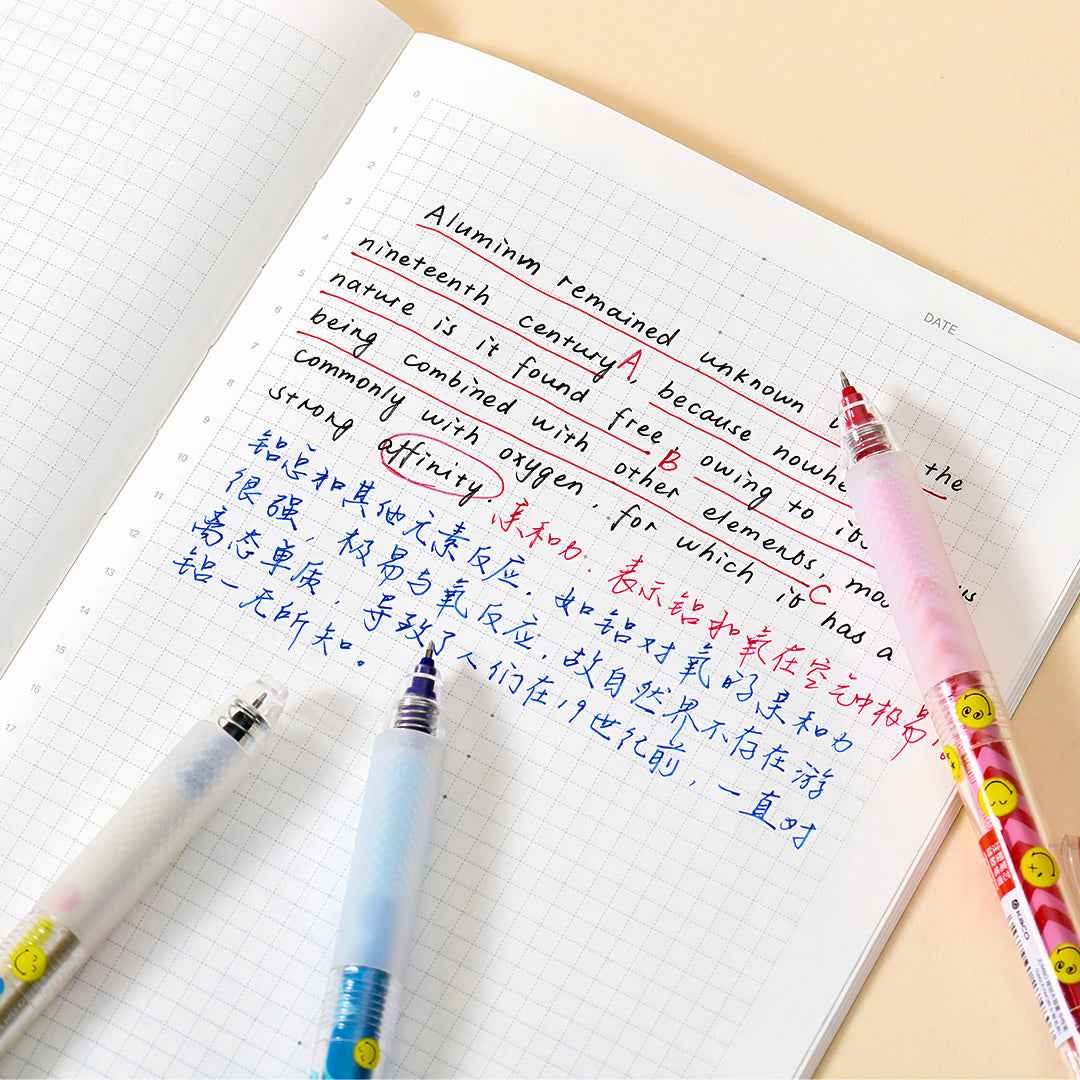 DATE
0
1
2
3
4
5
6
7
8
9
10
11
12
13
14
15
16
17
Aluminum remained unknown the
nineteenth century A, because
nature is it found free B owing to
being combined with other elements, C
commonly with oxygen, for which it has a
strong affinity 亲和力. 表示铝和氧在空气中极易
铝总和其他元素反应. 如铝对氧的亲和力
很强, 极易与氧反应. 故自然界不存在游
离态单质, 导致了人们在19世纪前, 一直对
铝一无所知。
KACO